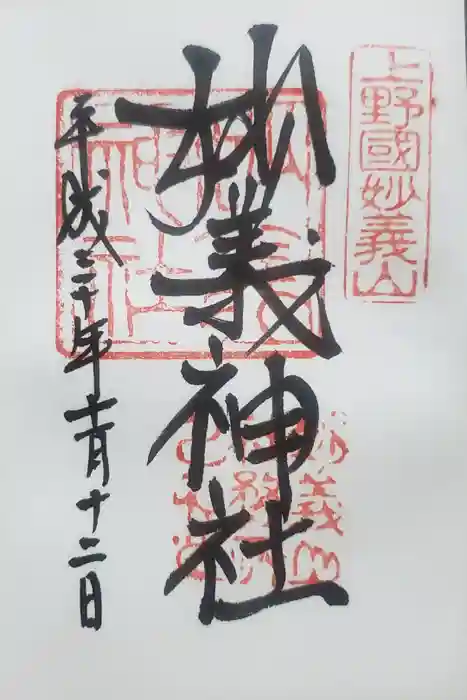 上野國妙義山
妙義神社
平成三十年十一月十二日